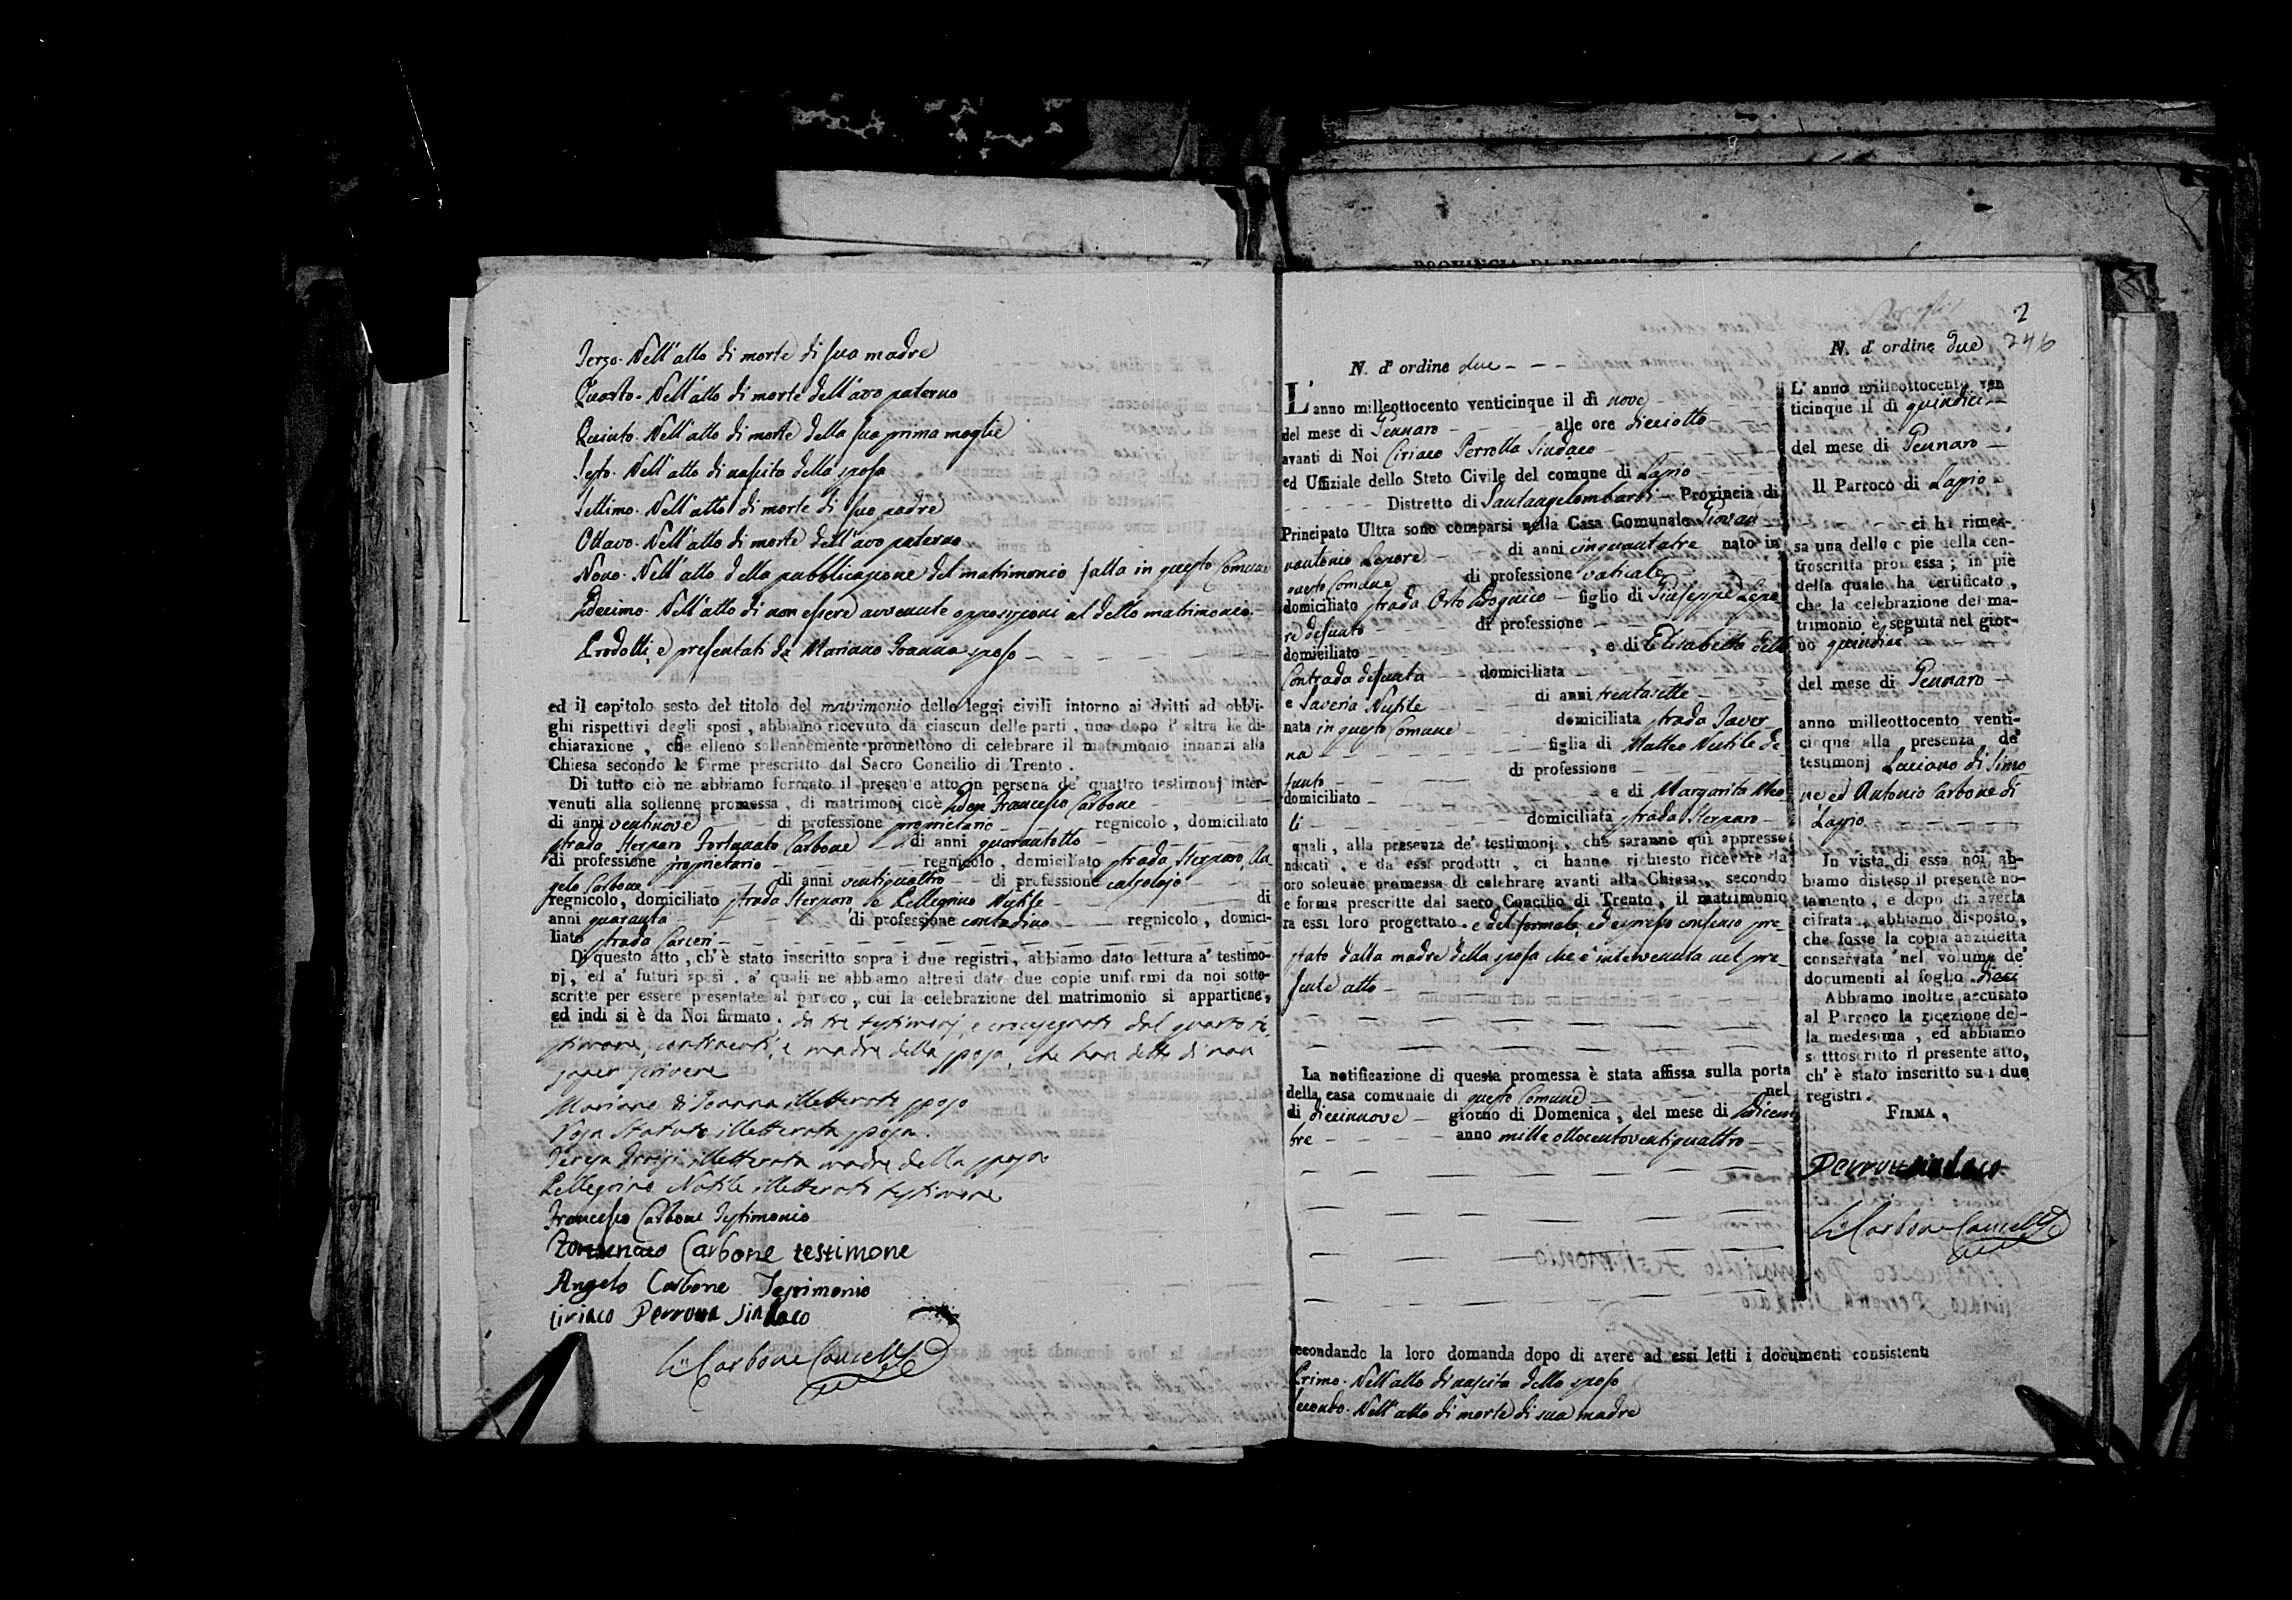 Terzo. Nell'atto di morte di sua madre
Quarto. Nell'atto di morte dell'avo paterno
Quinto. Nell'atto di morte della sua prima moglie
Sesto. Nell'atto di nascita della sposa
Settimo. Nell'atto di morte di suo padre
Ottavo. Nell'atto di morte dell'avo paterno
Nono. Nell'atto della pubblicazione del matrimonio fatta in questo Comune
Decimo. Nell'atto di non essere avvenute opposizioni al detto matrimonio.
Prodotti, e presentati da Mariano Ioanna sposo
ed il capitolo sesto del titolo del matrimonio delle leggi civili intorno ai dritti ad obbli-
ghi rispettivi degli sposi, abbiamo ricevuto da ciascun delle parti, una dopo l'altra la di-
chiarazione, che elleno sollennemente promettono di celebrare il matrimonio innanzi alla
Chiesa secondo le forme prescritto dal Sacro Concilio di Trento.
Di tutto ciò ne abbiamo formato il presente atto in persona de' quattro testimonj inter-
venuti alla sollenne promessa, di matrimonj cioè Don Francesco Carbone
di anni ventinove di professione proprietario regnicolo, domiciliato
strada Sterparo Fortunato Carbone di anni quarantotto
di professione proprietario regnicolo, domiciliato strada Sterparo, An
gelo Carbone di anni ventiquattro di professione calzolajo
regnicolo, domiciliato strada Sterparo e Pellegrino Nutile di
anni quaranta di professione contadino regnicolo, domici-
liato strada Carceri
Di questo atto, ch'è stato inscritto sopra i due registri, abbiamo dato lettura a' testimo-
nj, ed a' futuri sposi, a' quali ne abbiamo altresì date due copie uniformi da noi sotto-
scritte per essere presentate al paroco, cui la celebrazione del matrimonio si appartiene,
ed indi si è da Noi firmato, da tre testimonj, e crocesegnato dal quarto te
stimone, contraenti, e madre della sposa, che han detto di non
saper scrivere
Mariano di Ioanna illetterato sposo
Rosa Statuto illetterata sposa
Teresa illetterata madre della sposa
Pellegrino Nutile illetterato testimone
Francesco Carbone Testimonio
Fortunato Carbone testimone
Angelo Carbone Testimonio
Ciriaco Perrotta Sindaco
Carbone Cancelle
2
246
N. d'ordine due
L'anno milleottocento venticinque il dì nove
del mese di Gennaro alle ore dieciotto
avanti di Noi Ciriaco Perrotta Sindaco
ed Uffiziale dello Stato Civile del comune di Lapio
Distretto di Santangelombardi Provincia di
Principato Ultra sono comparsi nella Casa Comunale Giovan
nantonio Lepore di anni cinquantatre nato in
questo Comune di professione vaticale
domiciliato strada Orto figlio di Giuseppe Lepo
re defunto di professione
domiciliato , e di Elisabetta dello
Contrado defunta domiciliata
e Saveria Nutile di anni trentasette
nata in questo Comune domiciliata strada Taver
na figlia di Matteo Nutile de
funto di professione
domiciliato e di Margarita Meo
li domiciliata strada Sterparo
quali, alla presenza de' testimonj, che saranno qui appresso
ndicati, e da essi prodotti, ci hanno richiesto ricevere la
oro solenne promessa di celebrare avanti alla Chiesa, secondo
e forme prescritte dal sacro Concilio di Trento, il matrimonio
ra essi loro progettato. e del formale, ed espresso consenso pre
stato dalla madre della sposa che è intervenuta nel pre
sente atto
La notificazione di questa promessa è stata affissa sulla porta
della casa comunale di questo Comune nel
dì diecinnove giorno di Domenica, del mese di Dicem
bre anno mille ottocentoventiquattro
econdando la loro domanda dopo di avere ad essi letti i documenti consistenti
Primo. Nell'atto di nascita dello sposo
Secondo. Nell'atto di morte di sua madre
N. d'ordine due
L'anno milleottocento ven
ticinque il dì quindici
del mese di Gennaro
Il Parroco di Lapio
ci ha rimes-
sa una delle copie della con-
troscritta promessa; in piè
della quale ha certificato,
che la celebrazione del ma-
trimonio è seguita nel gior-
no quindici
del mese di Gennaro
anno milleottocento venti-
cinque alla presenza de'
testimonj Luciano di Simo
ne ed Antonio Carbone di
Lapio
In vista di essa noi ab-
biamo disteso il presente no-
tamento, e dopo di averla
cifrata, abbiamo disposto,
che fosse la copia anzidetta
conservata nel volume de'
documenti al foglio dieci
Abbiamo inoltre accusato
al Parroco la ricezione del-
la medesima, ed abbiamo
sotttoscritto il presente atto,
ch'è stato inscritto su i due
registri.
FIRMA,
Perrotta Sindaco
Carbone Cancelle